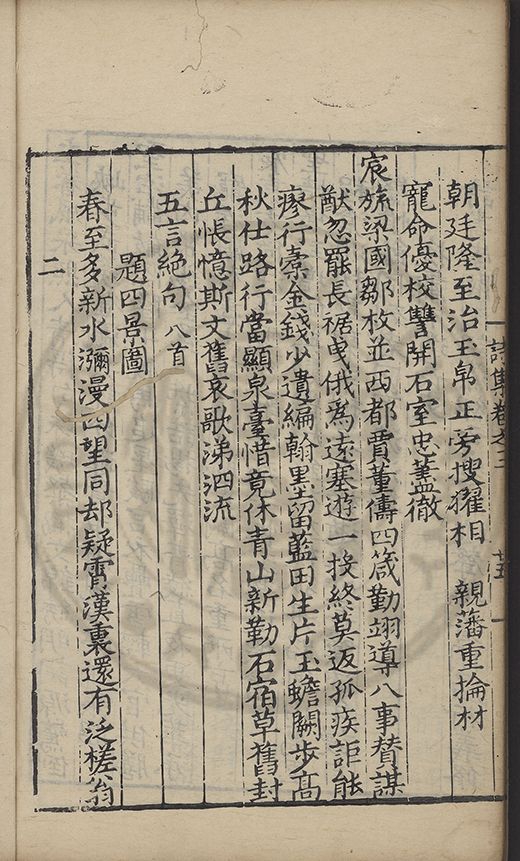 詩集卷之三 廿五
朝廷隆至治玉帛正旁搜擢相 親藩重掄材
寵命優校讐開石室忠藎徹
宸旒梁國鄒枚並西都賈董儔四箴勤翊導八事賛謀
猷忽罷長裾曳俄爲遠塞遊一投終莫返孤疾詎能
瘳行槖金錢少遺編翰墨留藍田生片玉蟾闕步髙
秋仕路行當顯泉臺惜竟休青山新勒石宿草舊封
丘悵憶斯文舊哀歌涕泗流
五言絶句 八首
題四景圖
春至多新水瀰漫四望同却疑霄漢裏還有泛槎翁
二